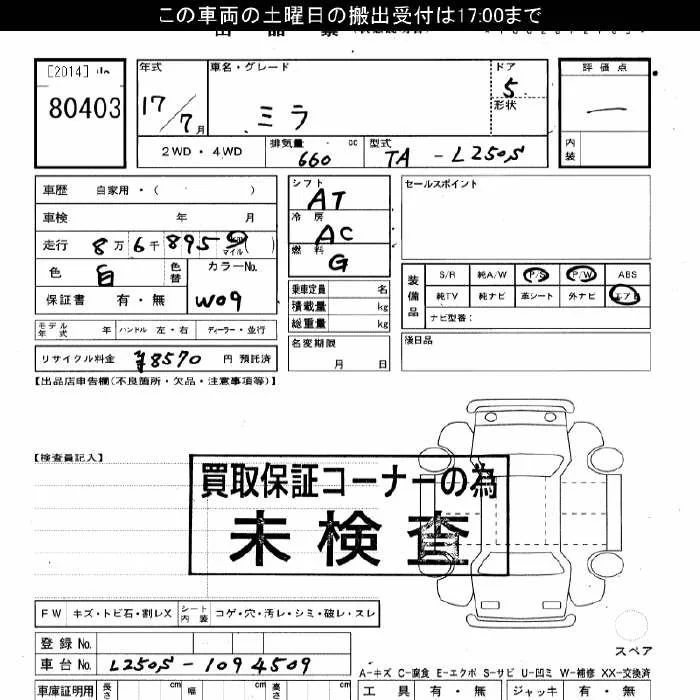 この車両の土曜日の搬出受付は17:00まで
[2014]
80403
年式
17/7月
車名・グレード
ミラ
ドア
5
形状
評価点
一
内装
2WD・4WD
排気量 660 cc
型式 TA - L250S
車歴 自家用・( )
車検 年 月
走行 8万6千895 km マイル( )
色 白 色替
カラーNo. W09
保証書 有・無
モデル年式 年 ハンドル 左・右 ディーラー・並行
リサイクル料金 ¥8570 円 預託済
シフト
AT
冷房
AC
燃料
G
乗車定員 名
積載量 kg
総重量 kg
名変期限
月 日
セールスポイント
装備品
S/R 純A/W P/S P/W ABS
純TV 純ナビ 革シート 外ナビ エアB
ナビ型番:
後日品
【出品店申告欄(不良箇所・欠品・注意事項等)】
【検査員記入】
買取保証コーナーの為
未検査
FW キズ・トビ石・割レX シート内装 コゲ・穴・汚レ・シミ・破レ・スレ
登録No.
車台No. L250S-1094509
スペア
A-キズ C-腐食 E-エクボ S-サビ U-凹ミ W-補修 XX-交換済
車庫証明用 長さ cm 幅 cm 高さ cm
工具 有・無 ジャッキ 有・無